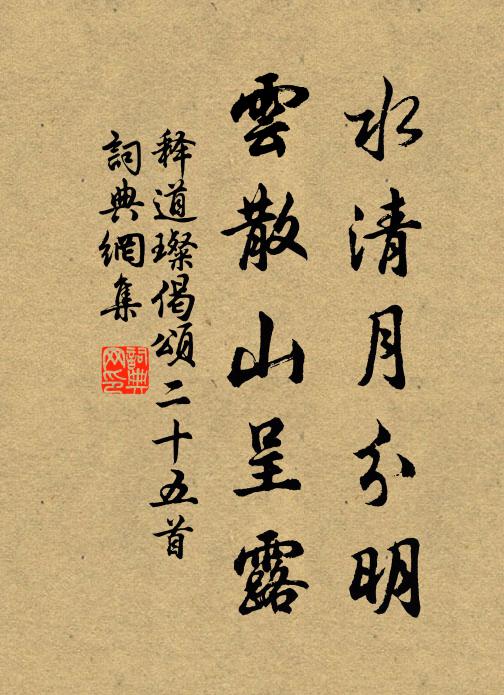 水清月分明
雲散山呈露
释道璨偈頌二十五首
詞典網集
詞典网印